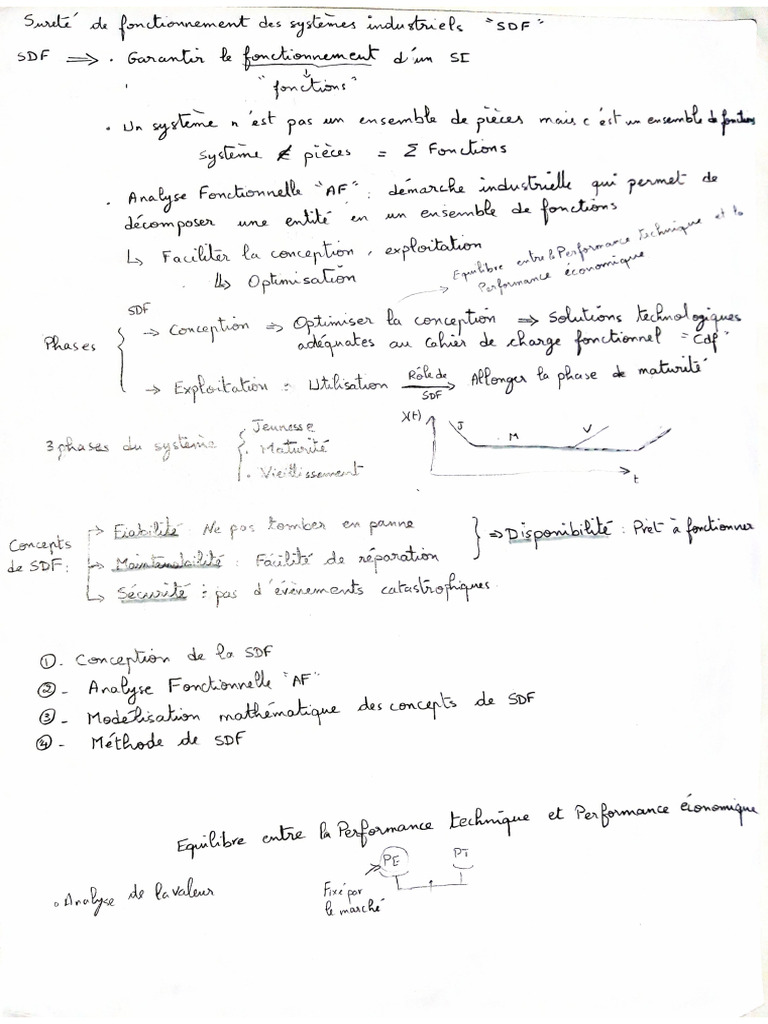 Sureté de fonctionnement des systèmes industriels "SDF"
SDF ⟹ • Garantir le fonctionnement d'un SI
"fonctions"
• Un système n'est pas un ensemble de pièces mais c'est un ensemble de fonctions
Système ≠ pièces = Σ Fonctions
• Analyse Fonctionnelle "AF" : démarche industrielle qui permet de
décomposer une entité en un ensemble de fonctions
↳ Faciliter la conception, exploitation
↳ Optimisation
Equilibre entre la Performance technique et la
Performance économique
SDF
Phases
→ Conception ⟹ Optimiser la conception ⟹ Solutions technologiques
adéquates au Cahier de charge fonctionnel "Cdf"
→ Exploitation = Utilisation Rôle de SDF → Allonger la phase de maturité
3 phases du système
• Jeunesse
• Maturité
• Vieillissement
λ(t) J M V t
Concepts de SDF :
→ Fiabilité : Ne pas tomber en panne
→ Maintenabilité : Facilité de réparation
⟹ Disponibilité : Pret à fonctionner
↳ Sécurité : pas d'évènements catastrophiques
① - Conception de la SDF
② - Analyse Fonctionnelle "AF"
③ - Modélisation mathématique des concepts de SDF
④ - Méthode de SDF
Equilibre entre la Performance technique et Performance économique
PE PT
• Analyse de la valeur
Fixé par
le marché